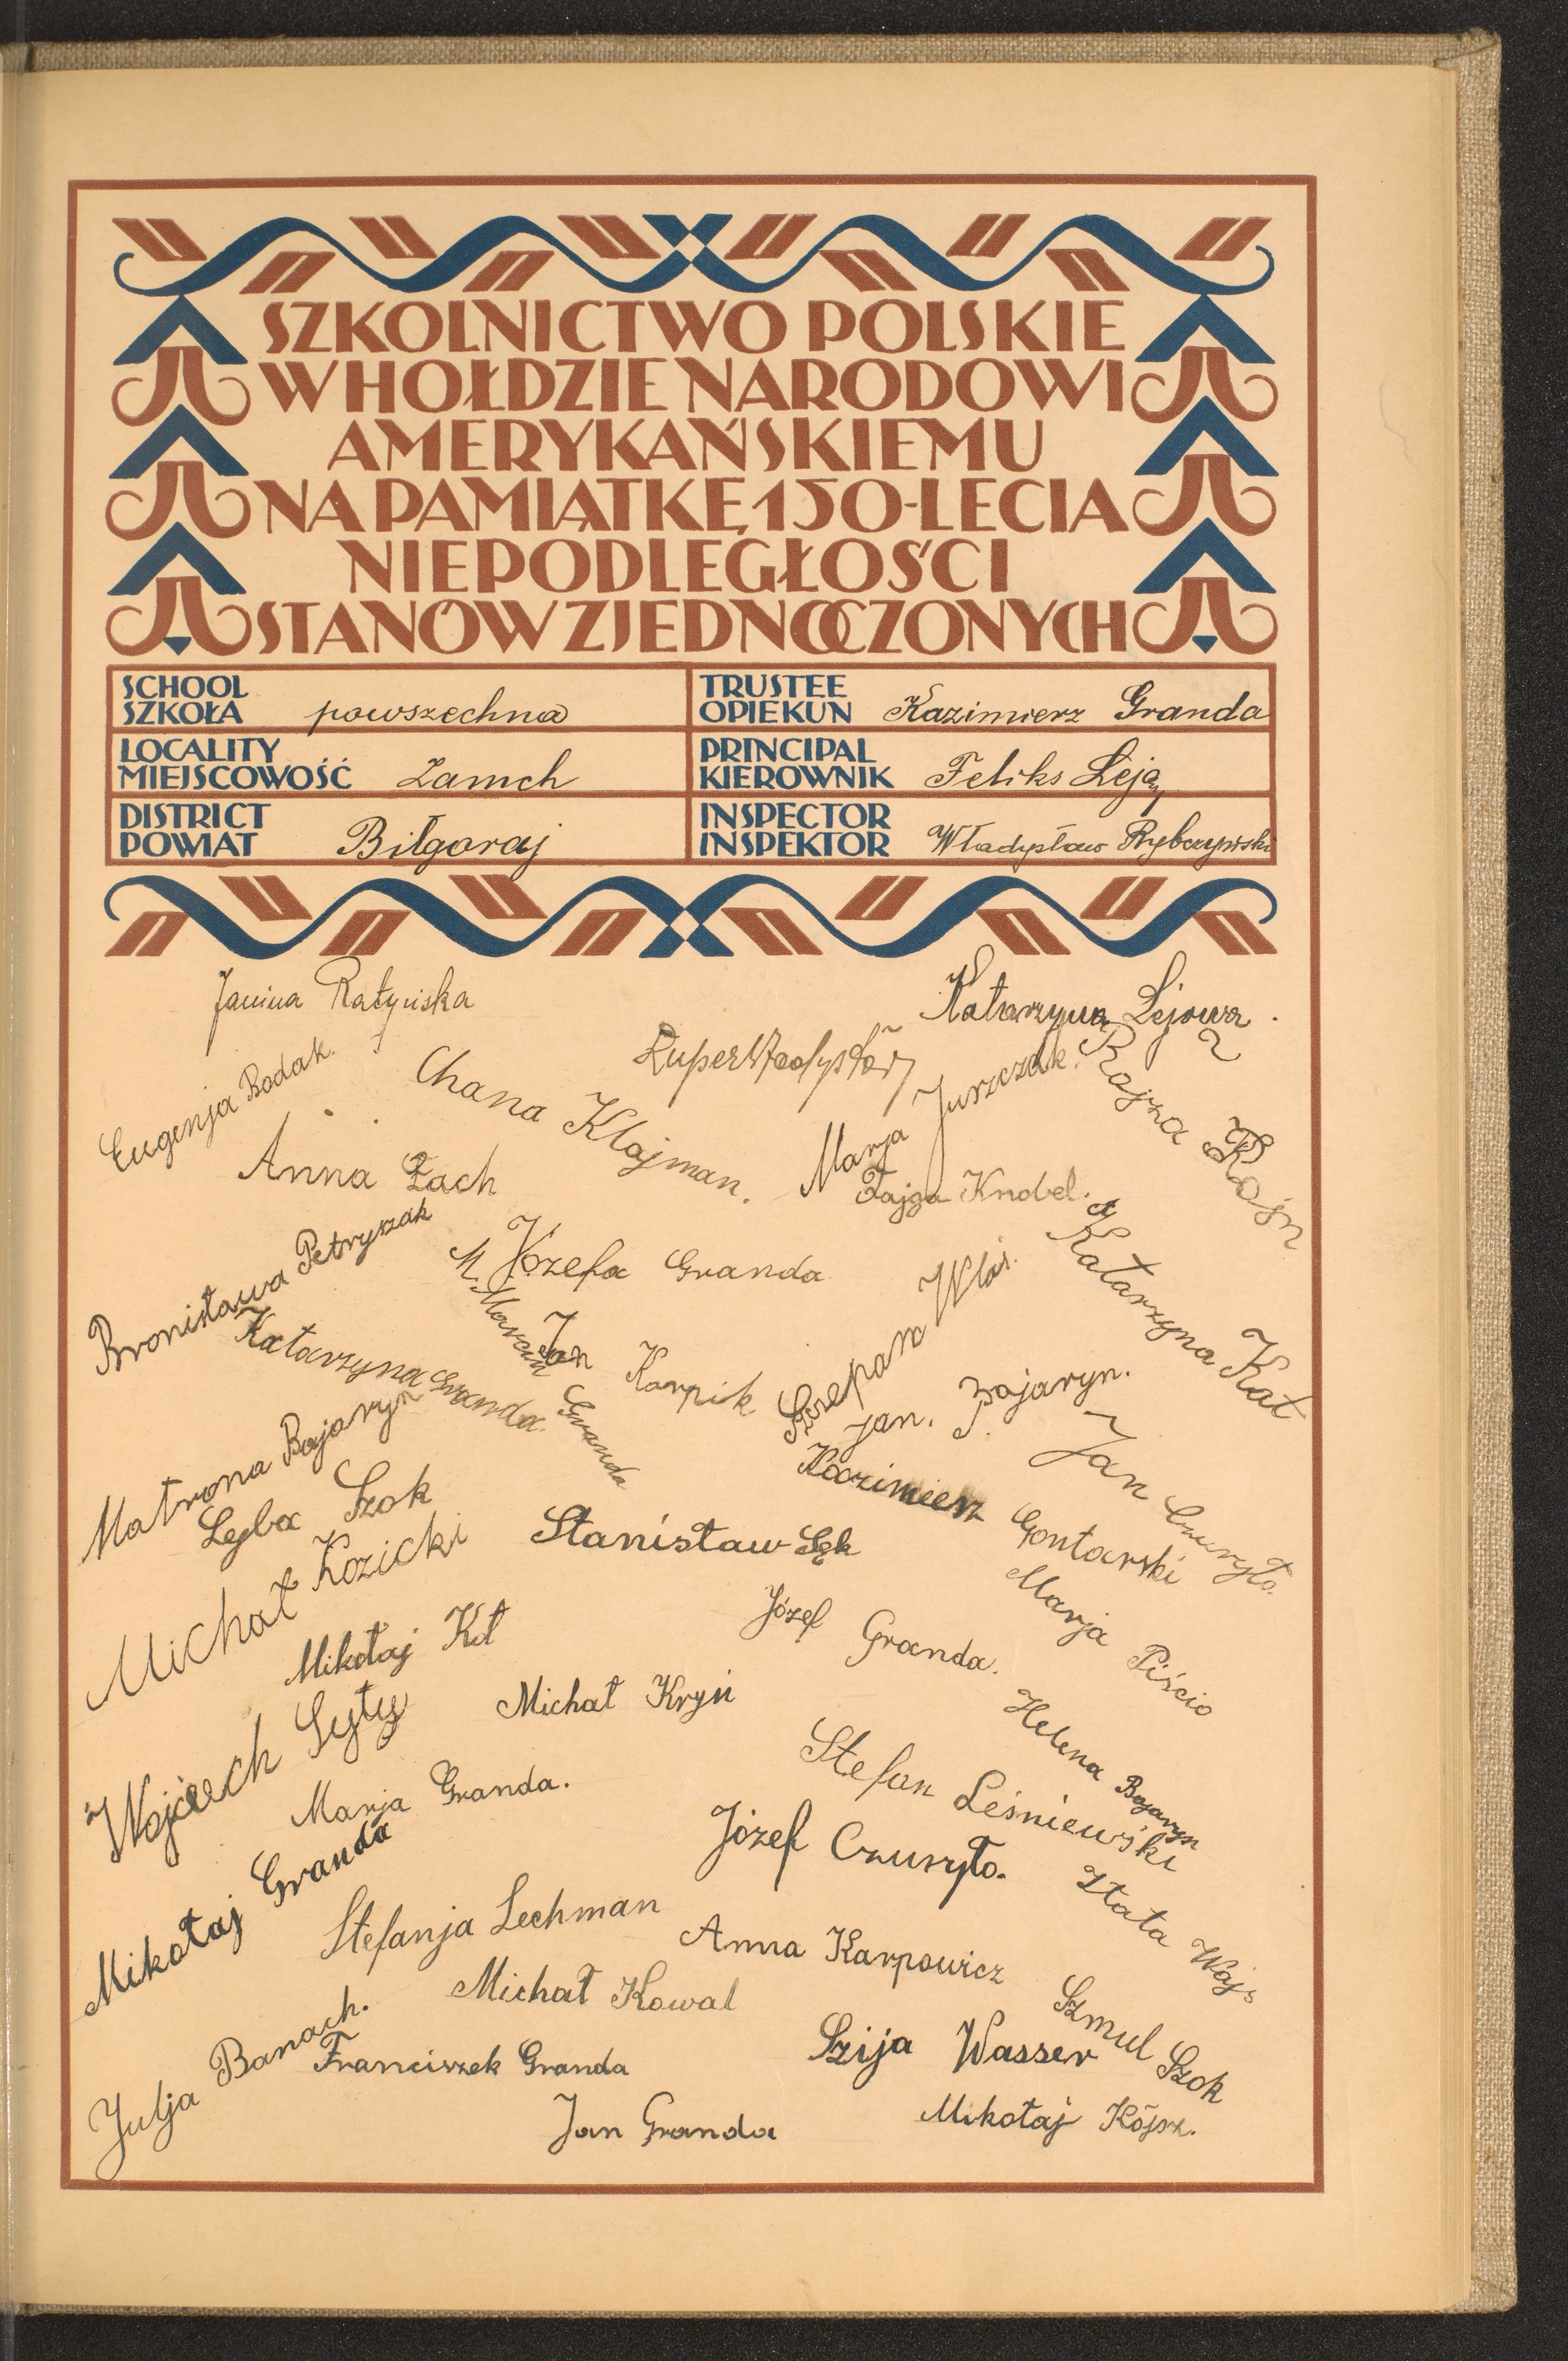 SZKOLNICTWO POLSKIE
W HOŁDZIE NARODOWI
AMERYKAŃSKIEMU
NA PAMIĄTKĘ 150-LECIA
NIEPODLEGŁOŚCI
STANÓW ZJEDNOCZONYCH
SCHOOL
SZKOŁA powszechna
TRUSTEE
OPIEKUN Kazimierz Granda
LOCALITY
MIEJSCOWOŚĆ Zamch
PRINCIPAL
KIEROWNIK Feliks Leja
DISTRICT
POWIAT Biłgoraj
INSPECTOR
INSPEKTOR Władysław Rybczyński
Janina Ratyńska
Katarzyna Lejowa.
Eugenja Bodak.
Chana Klajman.
Marja Jurczak.
Rajza Rajn
Anna Łach
Fajga Knobel.
Bronisława Petryszak
Józefa Granda
Katarzyna Kat
Katarzyna Granda.
M. Marcin Granda
Jan Karpik
Szczepan Wlaź.
Jan. Bojaryn.
Matrona Bojaryn
Lejba Szok
Kazimierz Gontarski
Jan Czuryło.
Michał Kozicki
Stanisław Sęk
Mikołaj Kot
Józef Granda.
Marja Piścio
Wojciech Syty
Michał Kryń
Helena Bojaryn
Marja Granda.
Stefan Leśniewski
Mikołaj Granda
Józef Czuryło.
Złata Wajs
Stefanja Lechman
Anna Karpowicz
Michał Kowal
Szmul Szok
Julja Banach.
Franciszek Granda
Szija Wasser
Jan Granda
Mikołaj